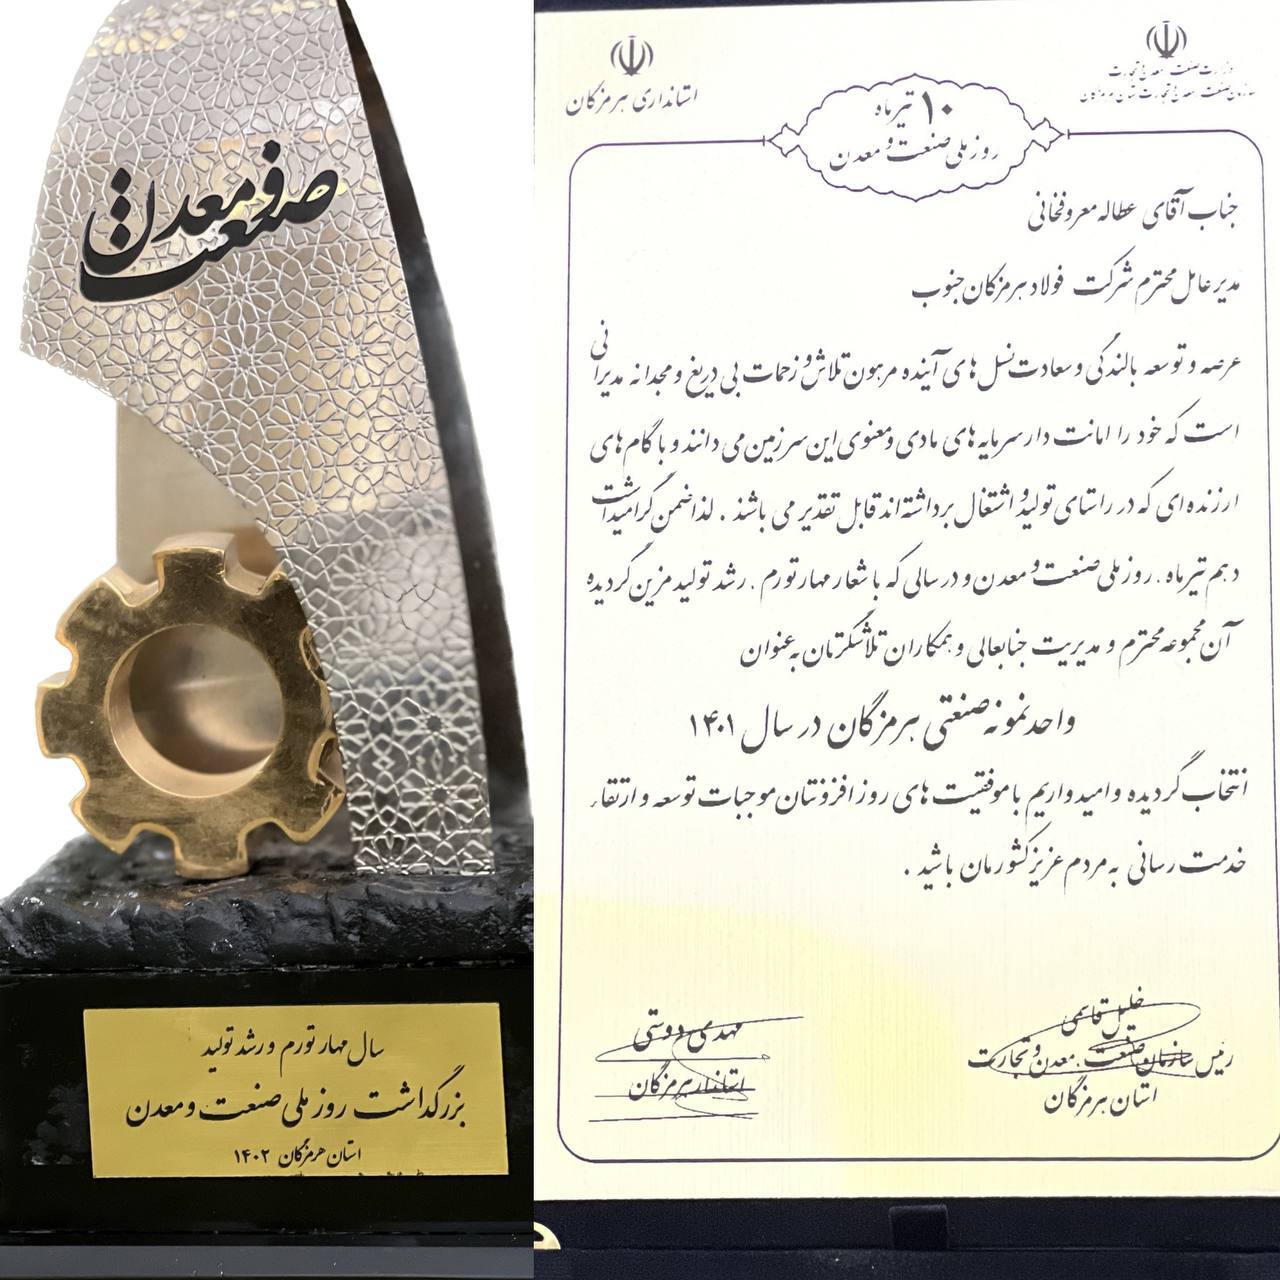 صنعت و معدن
سال مهار تورم و رشد تولید
بزرگداشت روز ملی صنعت و معدن
استان هرمزگان ۱۴۰۲
استانداری هرمزگان
وزارت صنعت، معدن و تجارت
سازمان صنعت، معدن و تجارت استان هرمزگان
۱۰ تیرماه
روز ملی صنعت و معدن
جناب آقای عطاله معروفخانی
مدیر عامل محترم شرکت فولاد هرمزگان جنوب
عرصه و توسعه بالندگی و سعادت نسل های آینده مرهون تلاش و زحمات بی دریغ و مجدانه مدیرانی
است که خود را امانت دار سرمایه های مادی و معنوی این سرزمین می دانند و با گام های
ارزنده ای که در راستای تولید و اشتغال برداشته اند قابل تقدیر می باشند . لذا ضمن گرامیداشت
دهم تیرماه ، روز ملی صنعت و معدن و در سالی که با شعار مهار تورم ، رشد تولید مزین گردیده
آن مجموعه محترم و مدیریت جنابعالی و همکاران تلاشگرتان به عنوان
واحد نمونه صنعتی هرمزگان در سال ۱۴۰۱
انتخاب گردیده و امیدواریم با موفقیت های روز افزونتان موجبات توسعه و ارتقاء
خدمت رسانی به مردم عزیز کشورمان باشید .
خلیل قاسمی
رئیس سازمان صنعت ، معدن و تجارت
استان هرمزگان
مهدی دوستی
استاندار هرمزگان